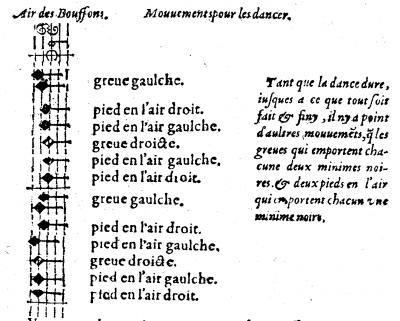 Air des Bouffons.
Mouuements pour les dancer.
greue gaulche.
pied en l'air droit.
pied en l'air gaulche.
greue droicte.
pied en l'air gaulche.
pied en l'air droit.
greue gaulche.
pied en l'air droit.
pied en l'air gaulche.
greue droicte.
pied en l'air gaulche.
pied en l'air droit.
Tant que la dance dure,
iusques a ce que tout soit
fait & finy, il n'y a point
d'aultres mouuemēts, q̄ les
greues qui emportent cha-
cune deux minimes noi-
res. & deux pieds en l'air
qui emportent chacun vne
minime noire.